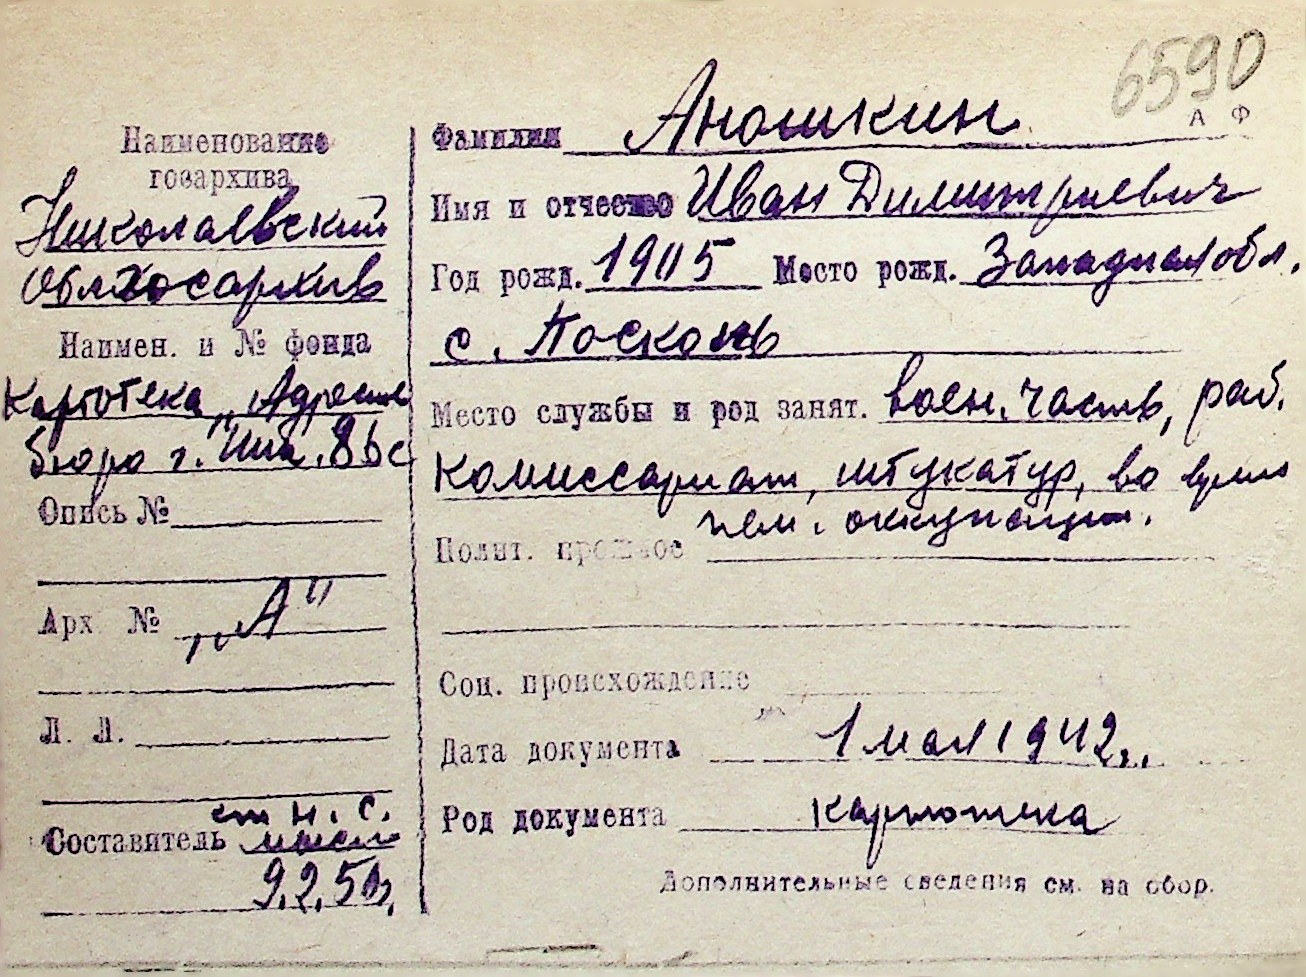 6590
А Ф
Наименование
госархива
Николаевский
Облгосархив
Наимен. и № фонда
Картотека „Адресн
бюро г.
Опись №
Арх №
„А"
Л. Л.
Составитель
9.2.50г.
Фамилия Аношкин
Имя и отчество Иван Димитриевич
Год рожд. 1905 Место рожд. Западная обл.
с. Посконь
Место службы и род занят. воен. часть, раб.
комиссариат, штукатур, во время
нем. оккупации.
Полит. прошлое
Соц. происхождение
Дата документа 1 мая 1942г.
Род документа картотека
Дополнительные сведения см. на обор.